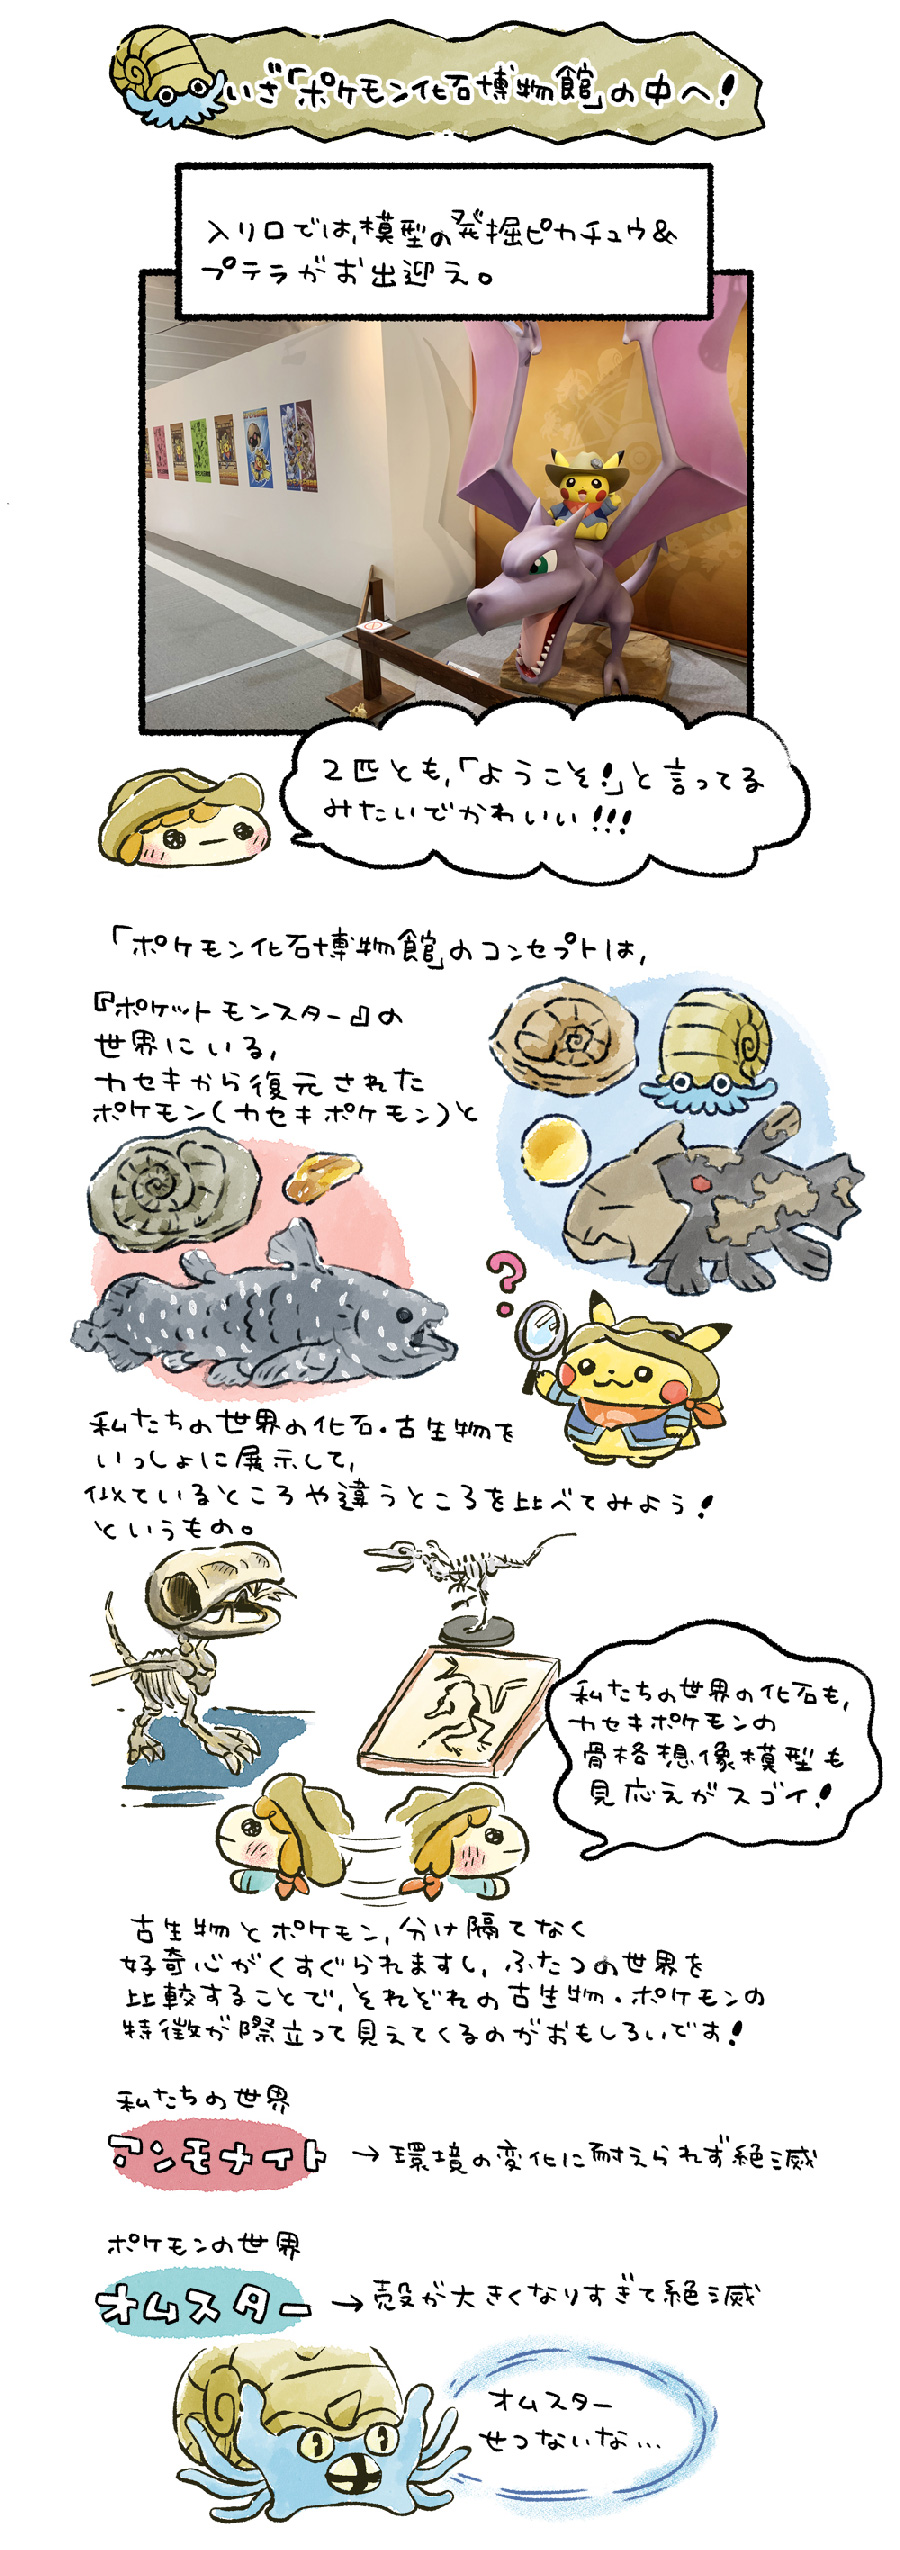 いざ「ポケモン化石博物館」の中へ!
入り口では、模型の発掘ピカチュウ&
プテラがお出迎え。
2匹とも、「ようこそ!」と言ってる
みたいでかわいい!!!
「ポケモン化石博物館」のコンセプトは、
『ポケットモンスター』の
世界にいる、
カセキから復元された
ポケモン(カセキポケモン)と
?
私たちの世界の化石・古生物を
いっしょに展示して、
似ているところや違うところを比べてみよう!
というもの。
私たちの世界の化石も、
カセキポケモンの
骨格想像模型も
見応えがスゴイ!
古生物とポケモン、分け隔てなく
好奇心がくすぐられますし、ふたつの世界を
比較することで、それぞれの古生物・ポケモンの
特徴が際立って見えてくるのがおもしろいです!
私たちの世界
アンモナイト →環境の変化に耐えられず絶滅
ポケモンの世界
オムスター →殻が大きくなりすぎて絶滅
オムスター
せつないな…